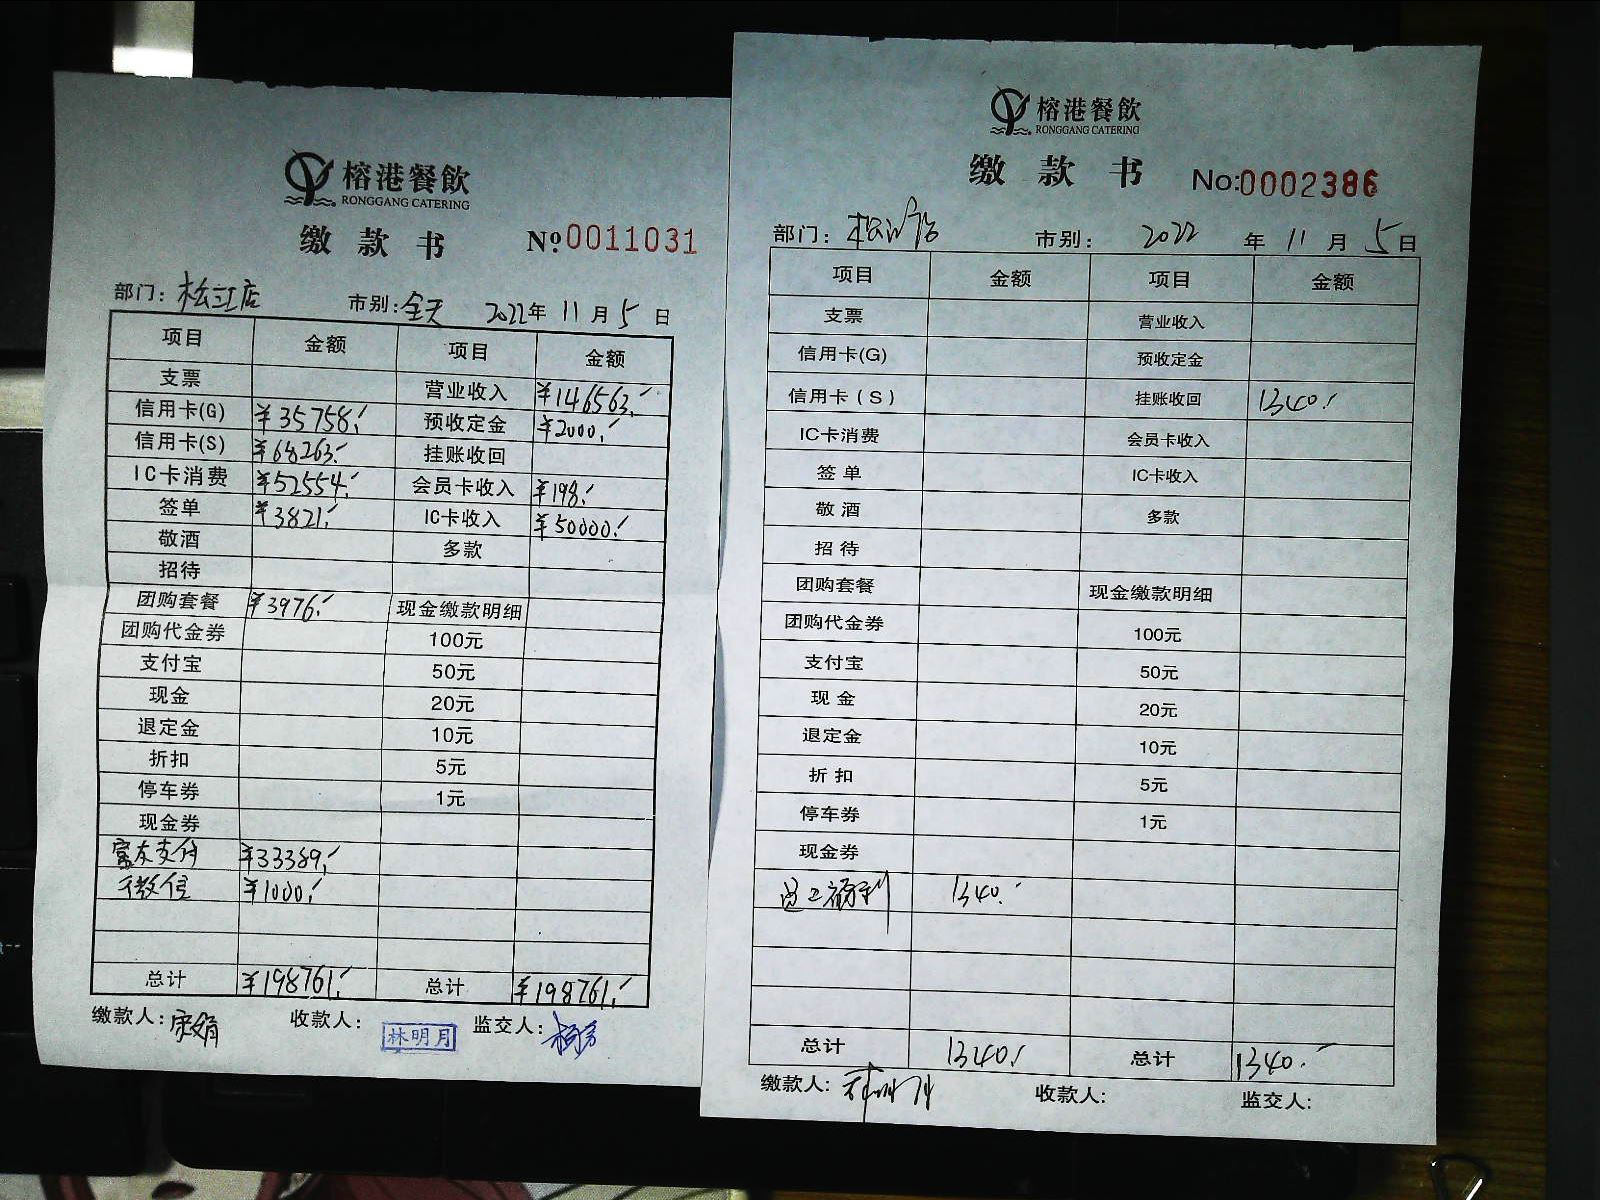 榕港餐飲
RONGGANG CATERING
缴款书 №0011031
部门: 松江店 市别: 全天 2022年 11月 5日
项目 金额 项目 金额
支票 营业收入 ¥146563.
信用卡(G) ¥35758. 预收定金 ¥2000.
信用卡(S) ¥68263. 挂账收回
IC卡消费 ¥52554. 会员卡收入 ¥198.
签单 ¥3821. IC卡收入 ¥50000.
敬酒 多款
招待
团购套餐 ¥3976. 现金缴款明细
团购代金券 100元
支付宝 50元
现金 20元
退定金 10元
折扣 5元
停车券 1元
现金券
支付 ¥33389.
微信 ¥1000.
总计 ¥198761. 总计 ¥198761.
缴款人: 收款人: 林明月 监交人:
榕港餐飲
RONGGANG CATERING
缴款书 No:0002386
部门: 松江店 市别: 2022 年 11 月 5日
项目 金额 项目 金额
支票 营业收入
信用卡(G) 预收定金
信用卡(S) 挂账收回 1340.
IC卡消费 会员卡收入
签单 IC卡收入
敬酒 多款
招待
团购套餐 现金缴款明细
团购代金券 100元
支付宝 50元
现金 20元
退定金 10元
折扣 5元
停车券 1元
现金券
员工福利 1340.
总计 1340. 总计 1340.
缴款人: 收款人: 监交人: